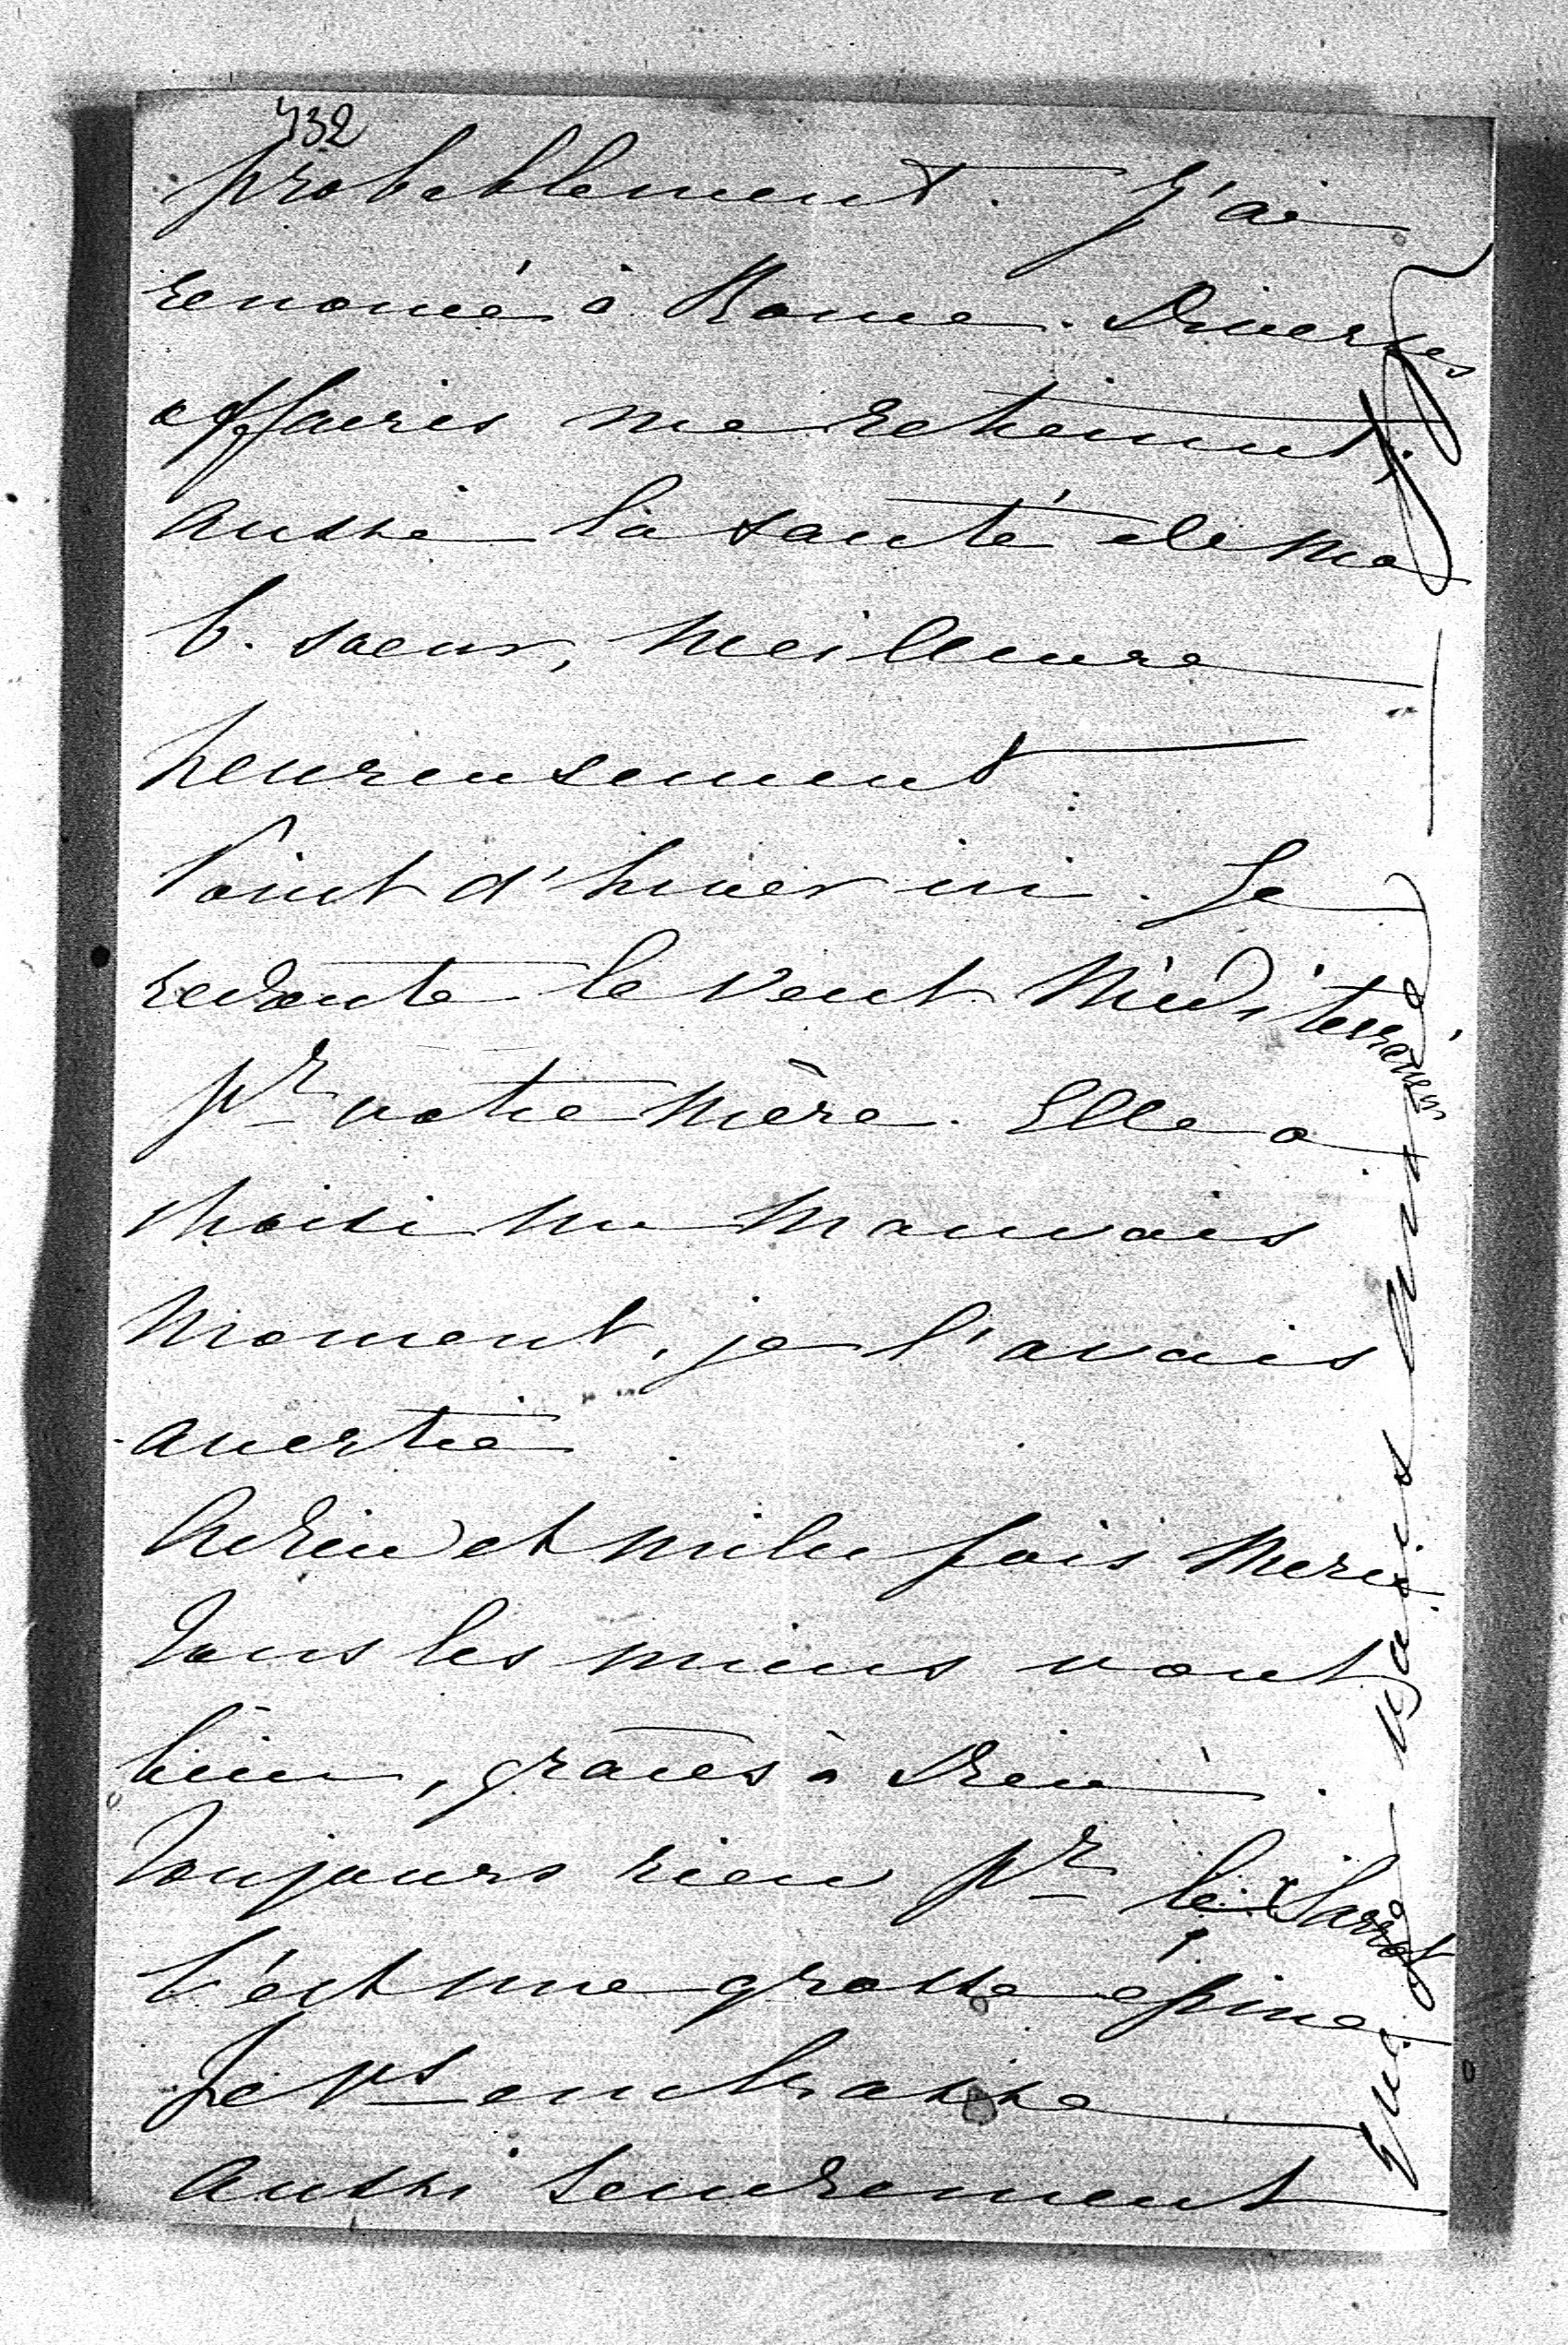 432
probablement. J'ai
renoncé à Rome. Diverses
affaires me retiennent,
aussi la santé de ma
b. soeur, meilleure
heureusement.
Point d'hiver ici. Je
redoute le vent Méditerranéen
pr votre mère. Elle a
choisi un mauvais
moment, je l'avais
avertie.
Adieu et mille fois merci.
Tous les miens vont
bien, grâces à Dieu.
Toujours rien pr le
C'est une grosse épine
Je vs embrasse
aussi tendrement
que je vais aimé